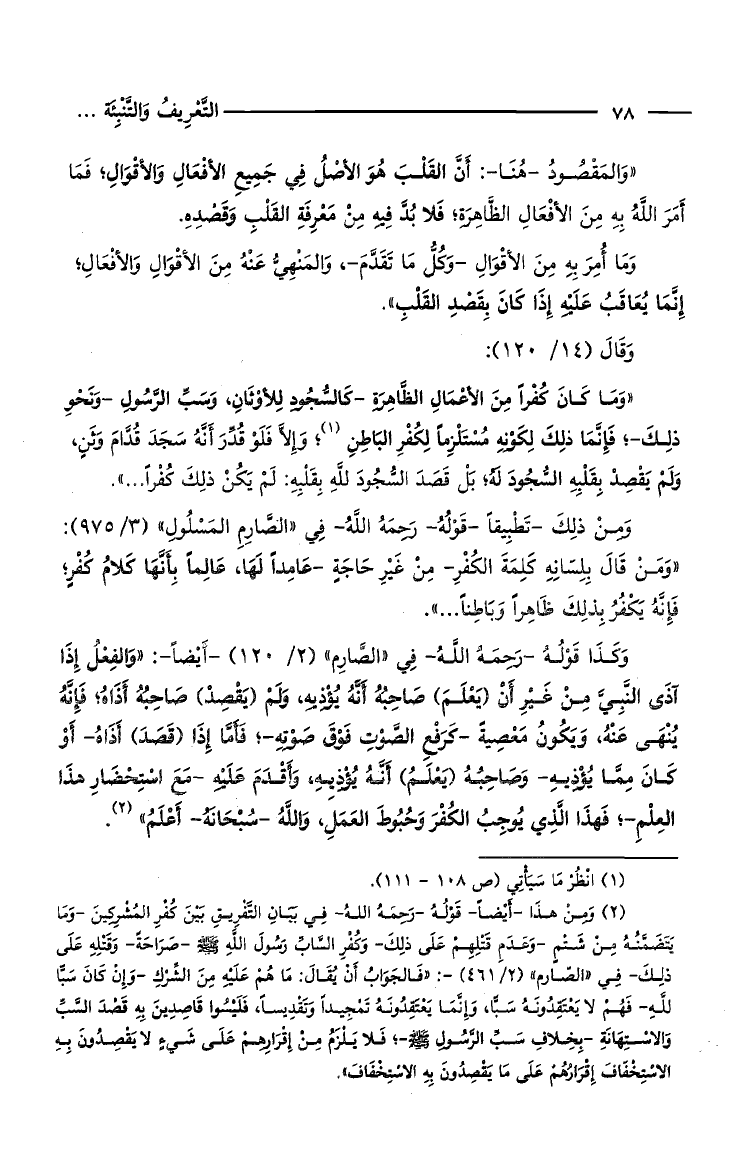 ٧٨ التَّعْرِيفُ وَالتَّنْبِئَة ...
«وَالمَقْصُودُ -هُنَا-: أَنَّ القَلْبَ هُوَ الأصْلُ فِي جَمِيعِ الأفْعَالِ وَالأقْوَالِ؛ فَمَا
أَمَرَ اللَّهُ بِهِ مِنَ الأفْعَالِ الظَّاهِرَةِ؛ فَلا بُدَّ فِيهِ مِنْ مَعْرِفَةِ القَلْبِ وَقَصْدِهِ.
وَمَا أُمِرَ بِهِ مِنَ الأقْوَالِ -وَكُلُّ مَا تَقَدَّمَ-، وَالمَنْهِيُّ عَنْهُ مِنَ الأقْوَالِ وَالأفْعَالِ؛
إِنَّمَا يُعَاقَبُ عَلَيْهِ إِذَا كَانَ بِقَصْدِ القَلْبِ».
وَقَالَ (١٤/ ١٢٠):
«وَمَا كَانَ كُفْراً مِنَ الأعْمَالِ الظَّاهِرَةِ -كَالسُّجُودِ لِلأوْثَانِ، وَسَبِّ الرَّسُولِ -وَنَحْوِ
ذلِكَ-؛ فَإِنَّمَا ذلِكَ لِكَوْنِهِ مُسْتَلْزِماً لِكُفْرِ البَاطِنِ (١)؛ وَإِلاَّ فَلَوْ قُدِّرَ أَنَّهُ سَجَدَ قُدَّامَ وَثَنٍ،
وَلَمْ يَقْصِدْ بِقَلْبِهِ السُّجُودَ لَهُ؛ بَلْ قَصَدَ السُّجُودَ للَّهِ بِقَلْبِهِ: لَمْ يَكُنْ ذلِكَ كُفْراً...».
وَمِنْ ذلِكَ -تَطْبِيقاً -قَوْلُهُ- رَحِمَهُ اللَّهُ- فِي «الصَّارِمِ المَسْلُولِ» (٣/ ٩٧٥):
«وَمَنْ قَالَ بِلِسَانِهِ كَلِمَةَ الكُفْرِ- مِنْ غَيْرِ حَاجَةٍ -عَامِداً لَهَا، عَالِماً بِأَنَّهَا كَلامُ كُفْرٍ؛
فَإِنَّهُ يَكْفُرُ بِذلِكَ ظَاهِراً وَبَاطِناً...».
وَكَذَا قَوْلُهُ -رَحِمَهُ اللَّهُ- فِي «الصَّارِمِ» (٢/ ١٢٠) -أَيْضاً-: «وَالفِعْلُ إِذَا
آذَى النَّبِيَّ مِنْ غَيْرِ أَنْ (يَعْلَمَ) صَاحِبُهُ أَنَّهُ يُؤْذِيهِ، وَلَمْ (يَقْصِدْ) صَاحِبُهُ أَذَاهُ؛ فَإِنَّهُ
يُنْهَى عَنْهُ، وَيَكُونُ مَعْصِيةً -كَرَفْعِ الصَّوْتِ فَوْقَ صَوْتِهِ-؛ فَأَمَّا إِذَا (قَصَدَ) أَذَاهُ- أَوْ
كَانَ مِمَّا يُؤْذِيهِ- وَصَاحِبُهُ (يَعْلَمُ) أَنَّهُ يُؤْذِيهِ، وَأَقْدَمَ عَلَيْهِ -مَعَ اسْتِحْضَارِ هذَا
العِلْمِ-؛ فَهذَا الَّذِي يُوجِبُ الكُفْرَ وَحُبُوطَ العَمَلِ، وَاللَّهُ -سُبْحَانَهُ- أَعْلَمُ» (٢).
(١) انْظُرْ مَا سَيَأْتِي (ص ١٠٨ - ١١١).
(٢) وَمِنْ هذَا -أَيْضاً- قَوْلُهُ -رَحِمَهُ اللهُ- فِي بَيَانِ التَّفْرِيقِ بَيْنَ كُفْرِ المُشْرِكِينَ -وَمَا
يَتَضَمَّنُهُ مِنْ شَتْمٍ -وَعَدَمِ قَتْلِهِمْ عَلَى ذلِكَ- وَكُفْرِ السَّابِّ رَسُولَ اللَّهِ ﷺ -صَرَاحَةً- وَقَتْلِهِ عَلَى
ذلِكَ- فِي «الصَّارِمِ» (٢/ ٤٦١) -: «فَالجَوَابُ أَنْ يُقَالَ: مَا هُمْ عَلَيْهِ مِنَ الشِّرْكِ -وَإِنْ كَانَ سَبًّا
للَّهِ- فَهُمْ لا يَعْتَقِدُونَهُ سَبًّا، وَإِنَّمَا يَعْتَقِدُونَهُ تَمْجِيداً وَتَقْدِيساً، فَلَيْسُوا قَاصِدِينَ بِهِ قَصْدَ السَّبِّ
وَالاسْتِهَانَةِ -بِخِلافِ سَبِّ الرَّسُولِ ﷺ-؛ فَلا يَلْزَمُ مِنْ إِقْرَارِهِمْ عَلَى شَيْءٍ لا يَقْصِدُونَ بِهِ
الاسْتِخْفَافَ إِقْرَارُهُمْ عَلَى مَا يَقْصِدُونَ بِهِ الاسْتِخْفَافَ».